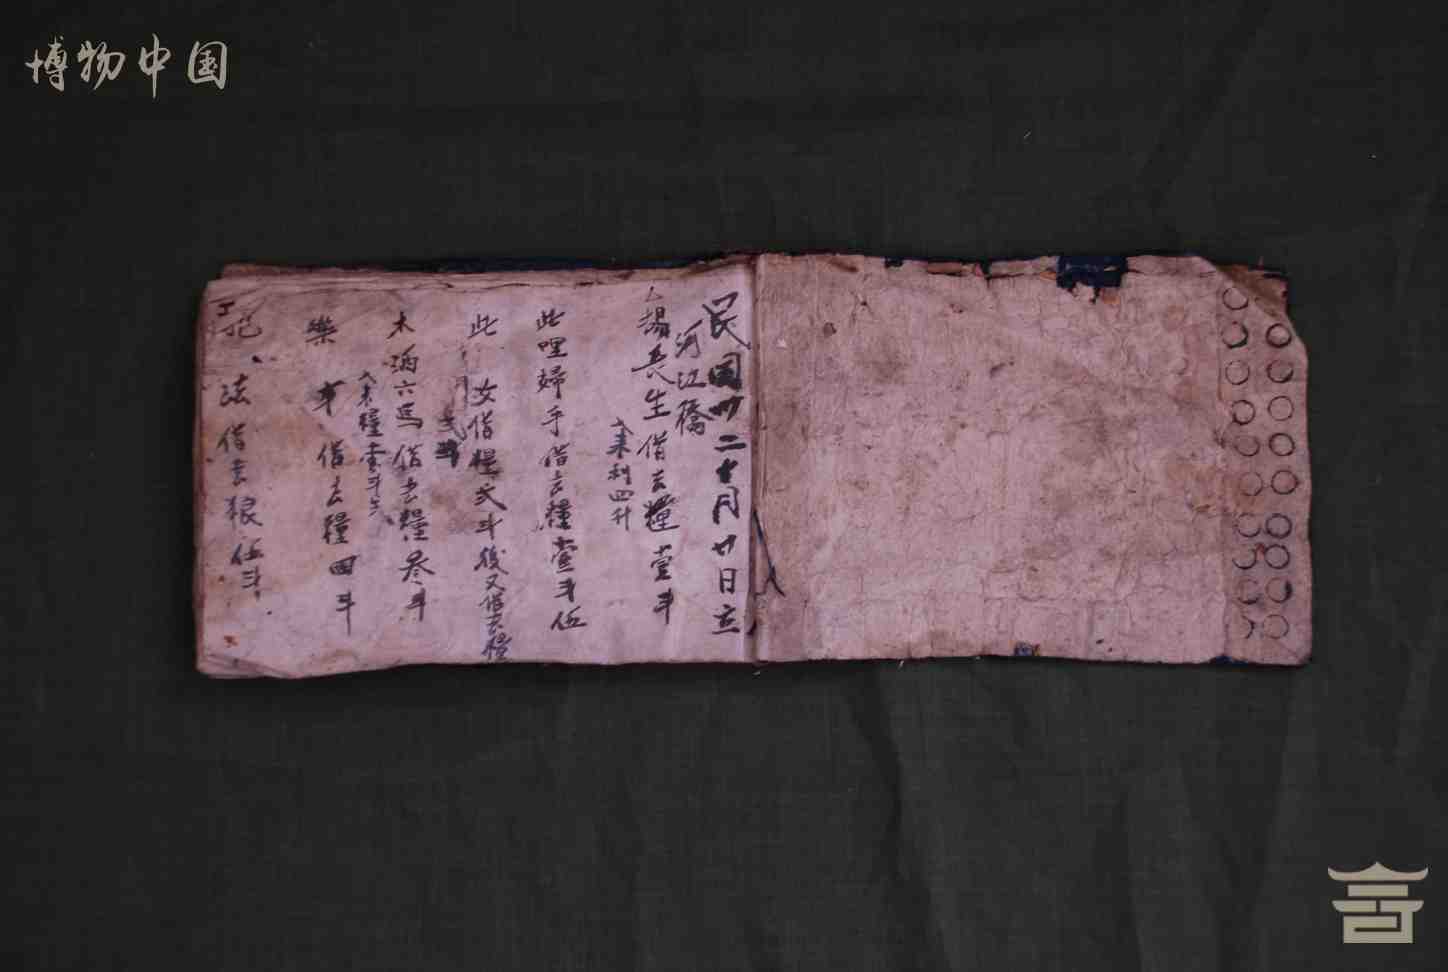 博物中国
民国卅二十月廿日立
河江橋
楊長生借去糧壹斗
入来利四升
此哩婦手借去糧壹斗伍
此 女借糧弍斗後又借去糧
弍斗
木 六馬借去糧叁斗
入来糧壹斗
樂 借去糧四斗
法借去粮伍斗